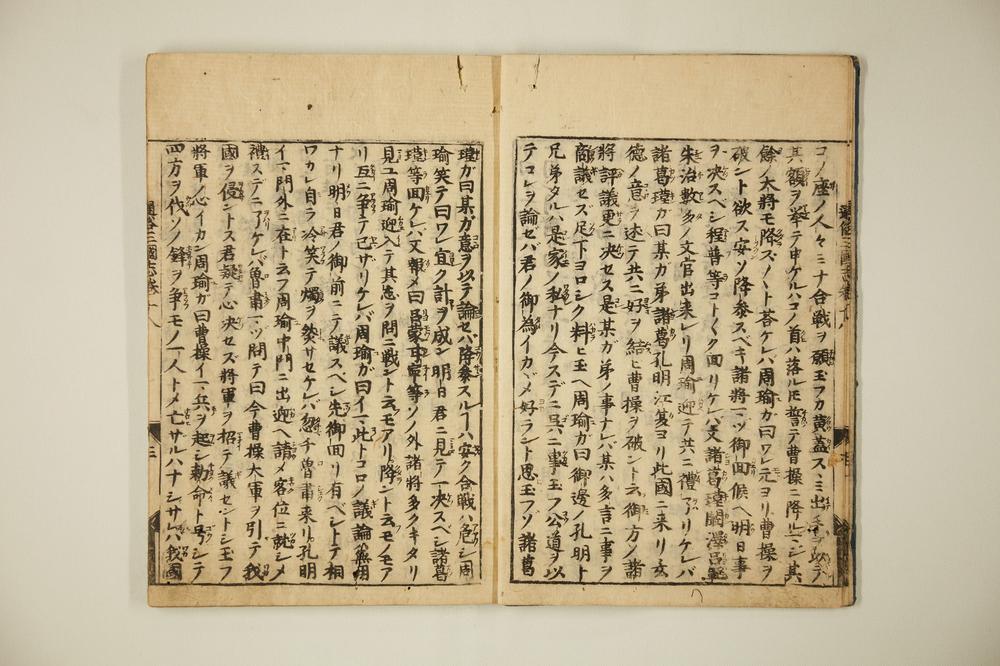 コノ座ノ人々ミナ合戦ヲ願玉フカ黄蓋スヽミ出手ヲ以テ
其額ヲ挙テ申ケルハコノ首ハ落ルモ誓テ曹操ニ降ルマシ其
餘ノ大將モ降ズノト荅ケレバ周瑜ガ曰ワレ元ヨリ曹操ヲ
破ント欲ス安ソ降叅スベキ諸將マヅ御回候ヘ明日事
ヲ决スベシ程普等コトヾク回リケレバ又諸葛瑾闞澤呂範
朱治數多ノ文官出来レリ周瑜迎テ共ニ禮ヲハリケレバ
諸葛瑾ガ曰某ガ弟諸葛孔明江夏ヨリ此國ニ来リ玄
德ノ意ヲ述テ共ニ好ヲ結ヒ曹操ヲ破ント云御方ノ諸
將評議更ニ决セス是某ガ弟ノ事ナレバ某ハ多言ニ事ヲ
商議セス足下ヨロシク料ヒ玉ヘ周瑜ガ曰御邊ノ孔明ト
兄弟タルハ是家ノ私ナリ今スデニ呉ニ事玉フ公道ヲ以
テコレヲ論セバ君ノ御為イカヾメ好ラント思玉フソ諸葛
瑾ガ曰某ガ意ヲ以テ論セバ降叅スルヿハ安ク合戰ハ危シ周
瑜笑テ曰ワレ宜ク計ヲ成ン明日君ニ見テ一决スベシ諸葛
瑾等回ケレバ又報メ曰呂蒙甘寧等ソノ外諸將多クキタリ
見ユ周瑜迎入テ其志ヲ問ニ戦ント云モアリ降ント云モノモア
リ互ニ争テ已ザリケレバ周瑜ガ曰イマ此トコロノ議論無用
ナリ明日君ノ御前ニテ議スベシ先御回リ有ベシトテ相
ワカレ自ラ冷笑テ燭ヲ焚サセケレバ忽チ魯肅来リ孔明
イマ門外ニ在ト云フ周瑜中門ニ出迎ヘ請メ客位ニ就シメ
禮スデニ了ケレバ魯肅マヅ問テ曰今曹操大軍ヲ引テ我
國ヲ侵ントス君疑テ心决セズ將軍ヲ招テ議セントシ玉フ
將軍ノ心イカン周瑜ガ曰曹操イマ兵ヲ起シ勅命ト号シテ
四方ヲ伐ソノ鋒ヲ争モノ一人トメ亡ザルハナシサレバ我國
通俗三國志巻十八
三